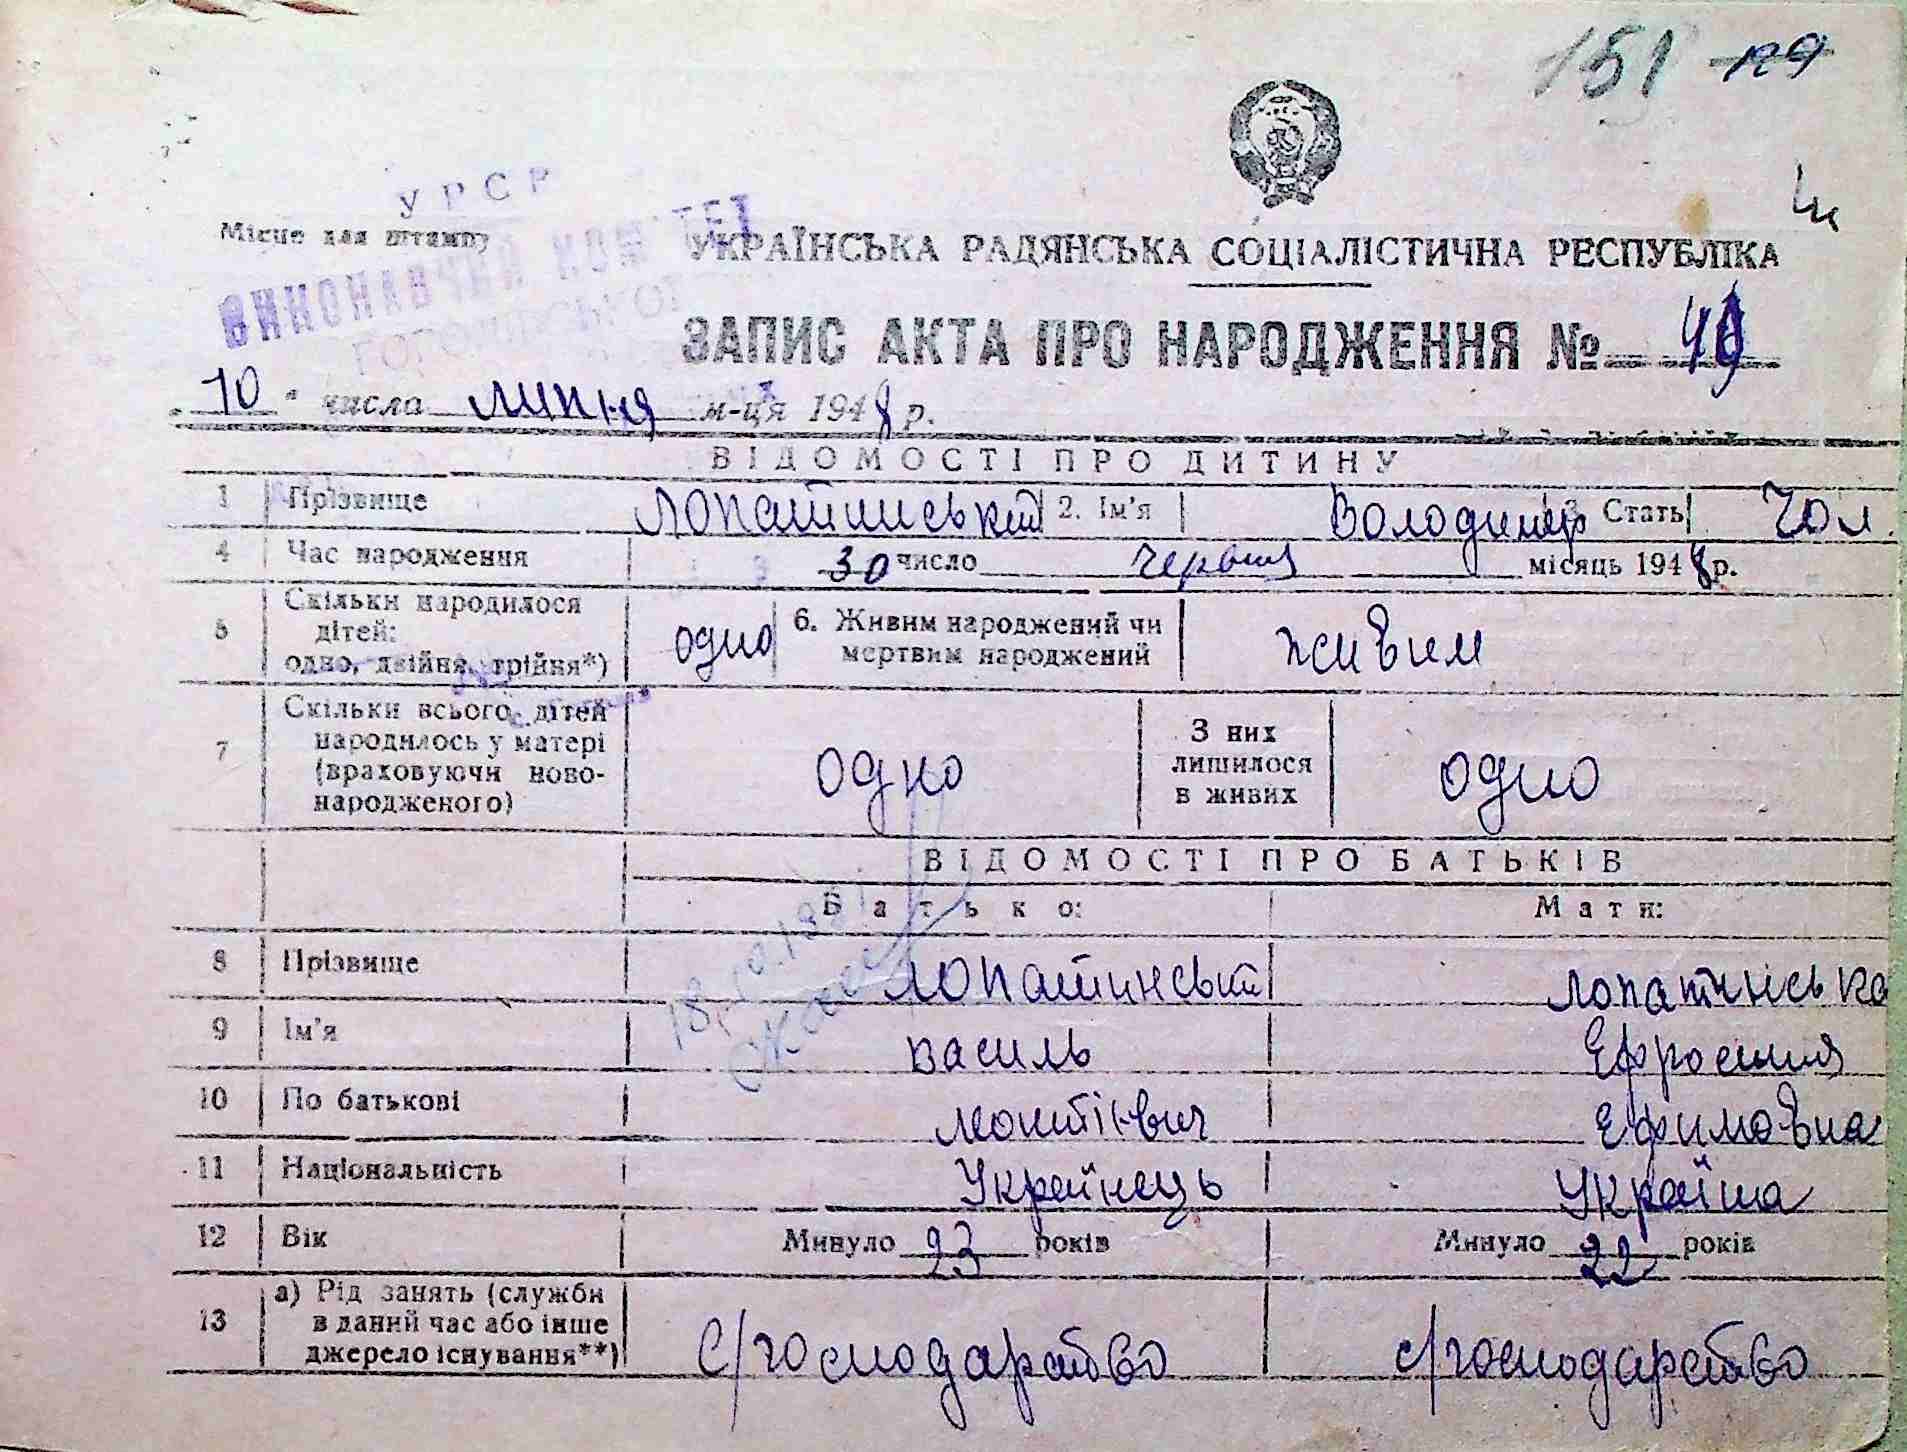 151 129
УРСР
Місце для штампу
ВИКОНАВЧИЙ КОМІТЕТ
УКРАЇНСЬКА РАДЯНСЬКА СОЦІАЛІСТИЧНА РЕСПУБЛІКА
ЗАПИС АКТА ПРО НАРОДЖЕННЯ №
„10“ числа липня м-ця 1948 р.
ВІДОМОСТІ ПРО ДИТИНУ
1 Прізвище Лопатинський 2. Ім'я Володимир 3. Стать Чол.
4 Час народження 30 число червня місяць 1948 р.
5 Скільки народилося
дітей:
одно, двійня, трійня*) одно 6. Живим народжений чи
мертвим народжений живим
7 Скільки всього дітей
народилось у матері
(враховуючи ново-
народженого) одно З них
лишилося
в живих одно
ВІДОМОСТІ ПРО БАТЬКІВ
Батько: Мати:
8 Прізвище Лопатинський Лопатинська
9 Ім'я Василь Ефросиния
10 По батькові Ефимовна
11 Національність Українець Українка
12 Вік Минуло 23 років Минуло 22 років
13 а) Рід занять (служби
в даний час або інше
джерело існування**) с/господарство с/господарство